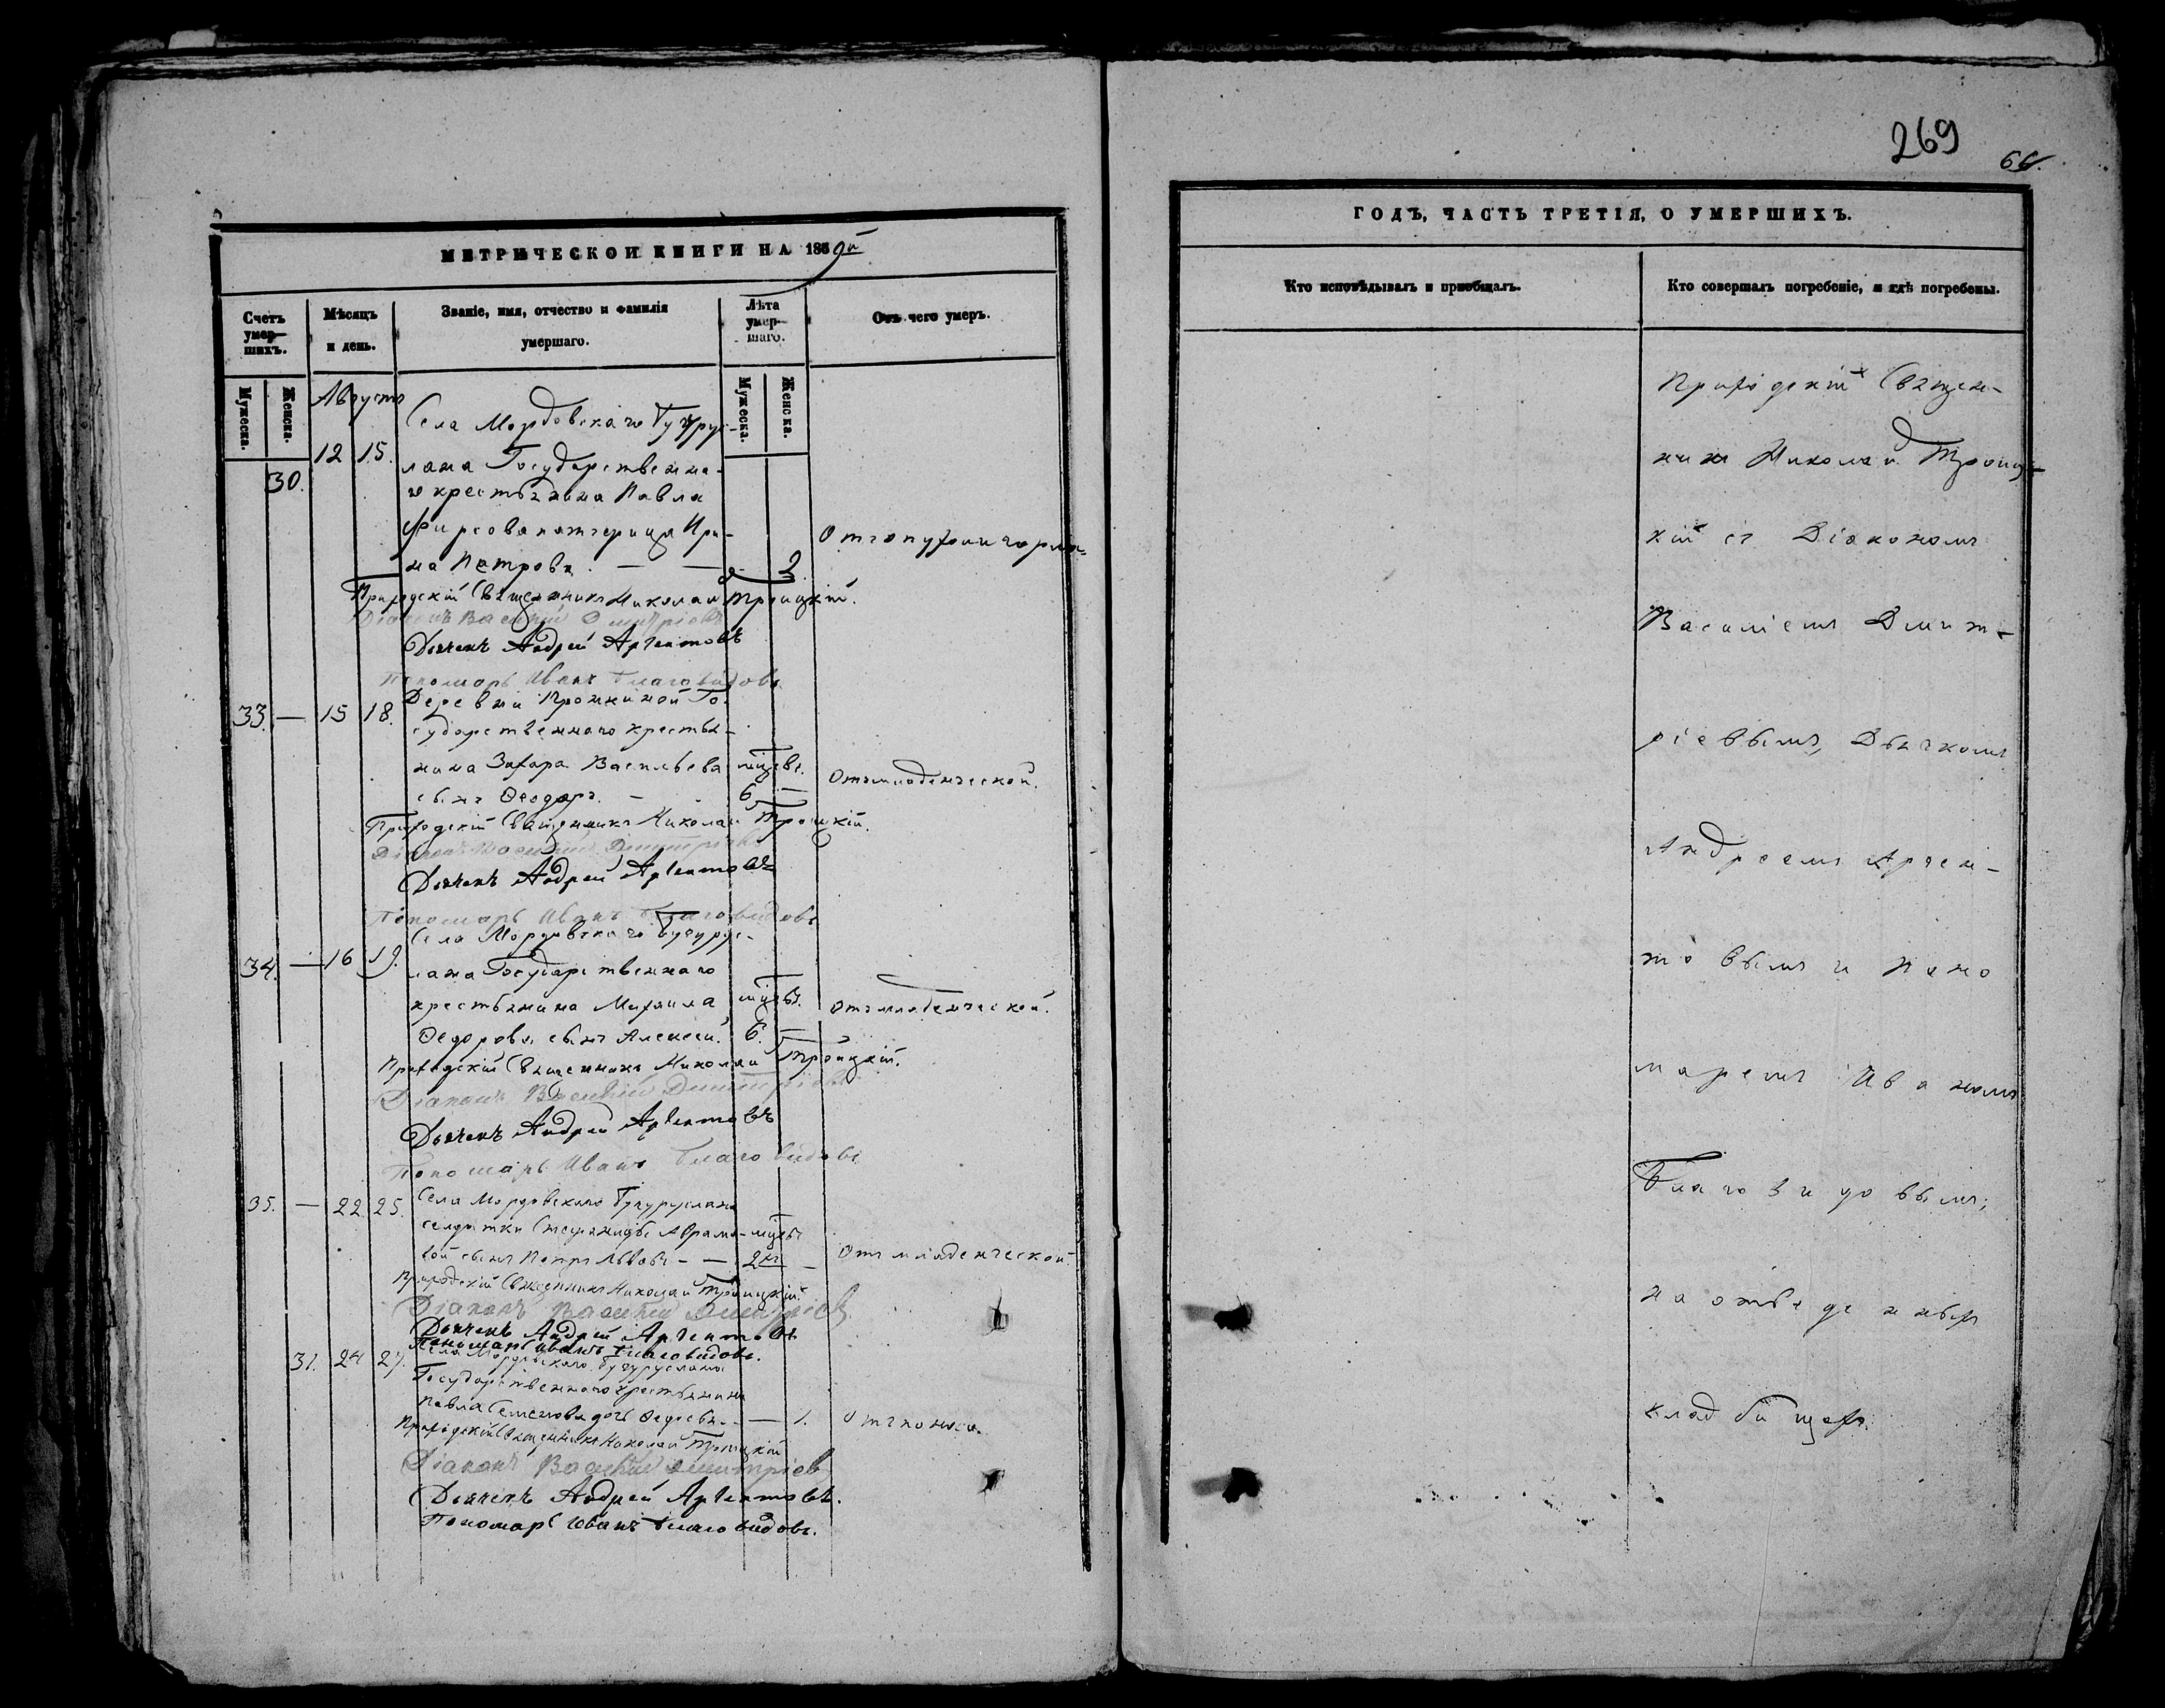 МЕТРИЧЕСКОЙ КНИГИ НА 1869й
Счетъ умер-шихъ.
Мѣсяцъ и день.
Званіе, имя, отчество и фамилія умершаго.
Лѣта умер-шаго.
Отъ чего умеръ.
Мужеска.
Женска.
Мужеска.
Женска.
Августъ
30. 12 15.
Села Мордовскаго Бугурус-
лана Государственна-
го крестьянина Павла
Фирсова патчерица Ири-
на Петрова. — — 2.
Отъ опухоли горла
Приходскій Священникъ Николай Троицкій.
Діаконъ Василій Димитріевъ
Дьячекъ Андрей Аргентовъ
Пономарь Иванъ Благовидовъ.
33. — 15 18.
Деревни Пронкиной Го-
сударственнаго крестья-
нина Захара Васильева
сынъ Ѳеодоръ. — мцевъ. 6 —
Отъ младенческой.
Приходскій Священникъ Николай Троицкій.
Діаконъ Василій Димитріевъ
Дьячекъ Андрей Аргентовъ
Пономарь Иванъ Благовидовъ
34. — 16 19.
Села Мордовскаго Бугурус-
лана Государственнаго
крестьянина Михаила
Ѳедорова сынъ Алексей. мцевъ. 6. —
Отъ младенческой.
Приходскій Священникъ Николай Троицкій.
Діаконъ Василій Димитріевъ
Дьячекъ Андрей Аргентовъ
Пономарь Иванъ Благовидовъ
35. — 22 25.
Села Мордовскаго Бугуруслана
солдатки Степаниды Абрамо-
вой сынъ Петръ Львовъ — — 2
Отъ младенческой.
Приходскій Священникъ Николай Троицкій.
Діаконъ Василій Димитріевъ
Дьячекъ Андрей Аргентовъ
Пономарь Иванъ Благовидовъ.
31. 24 27.
Села Мордовскаго Бугуруслана
Государственнаго крестьянина
Павла Семенова дочь Ѳедосья. — — 1.
Отъ поноса.
Приходскій Священникъ Николай Троицкій
Діаконъ Василій Димитріевъ
Дьячекъ Андрей Аргентовъ.
Пономарь Иванъ Благовидовъ.
269
ГОДЪ, ЧАСТЬ ТРЕТІЯ, О УМЕРШИХЪ.
Кто исповѣдывалъ и пріобщалъ.
Кто совершалъ погребеніе, и гдѣ погребены.
Приходскій Священ-
никъ Николай Троиц-
кій съ Діакономъ
Василіемъ Димит-
ріевымъ, Дьячкомъ
Андреемъ Арген-
товымъ и Поно
маремъ Иваномъ
Благовидовымъ,
на отведенныхъ
кладбищахъ.